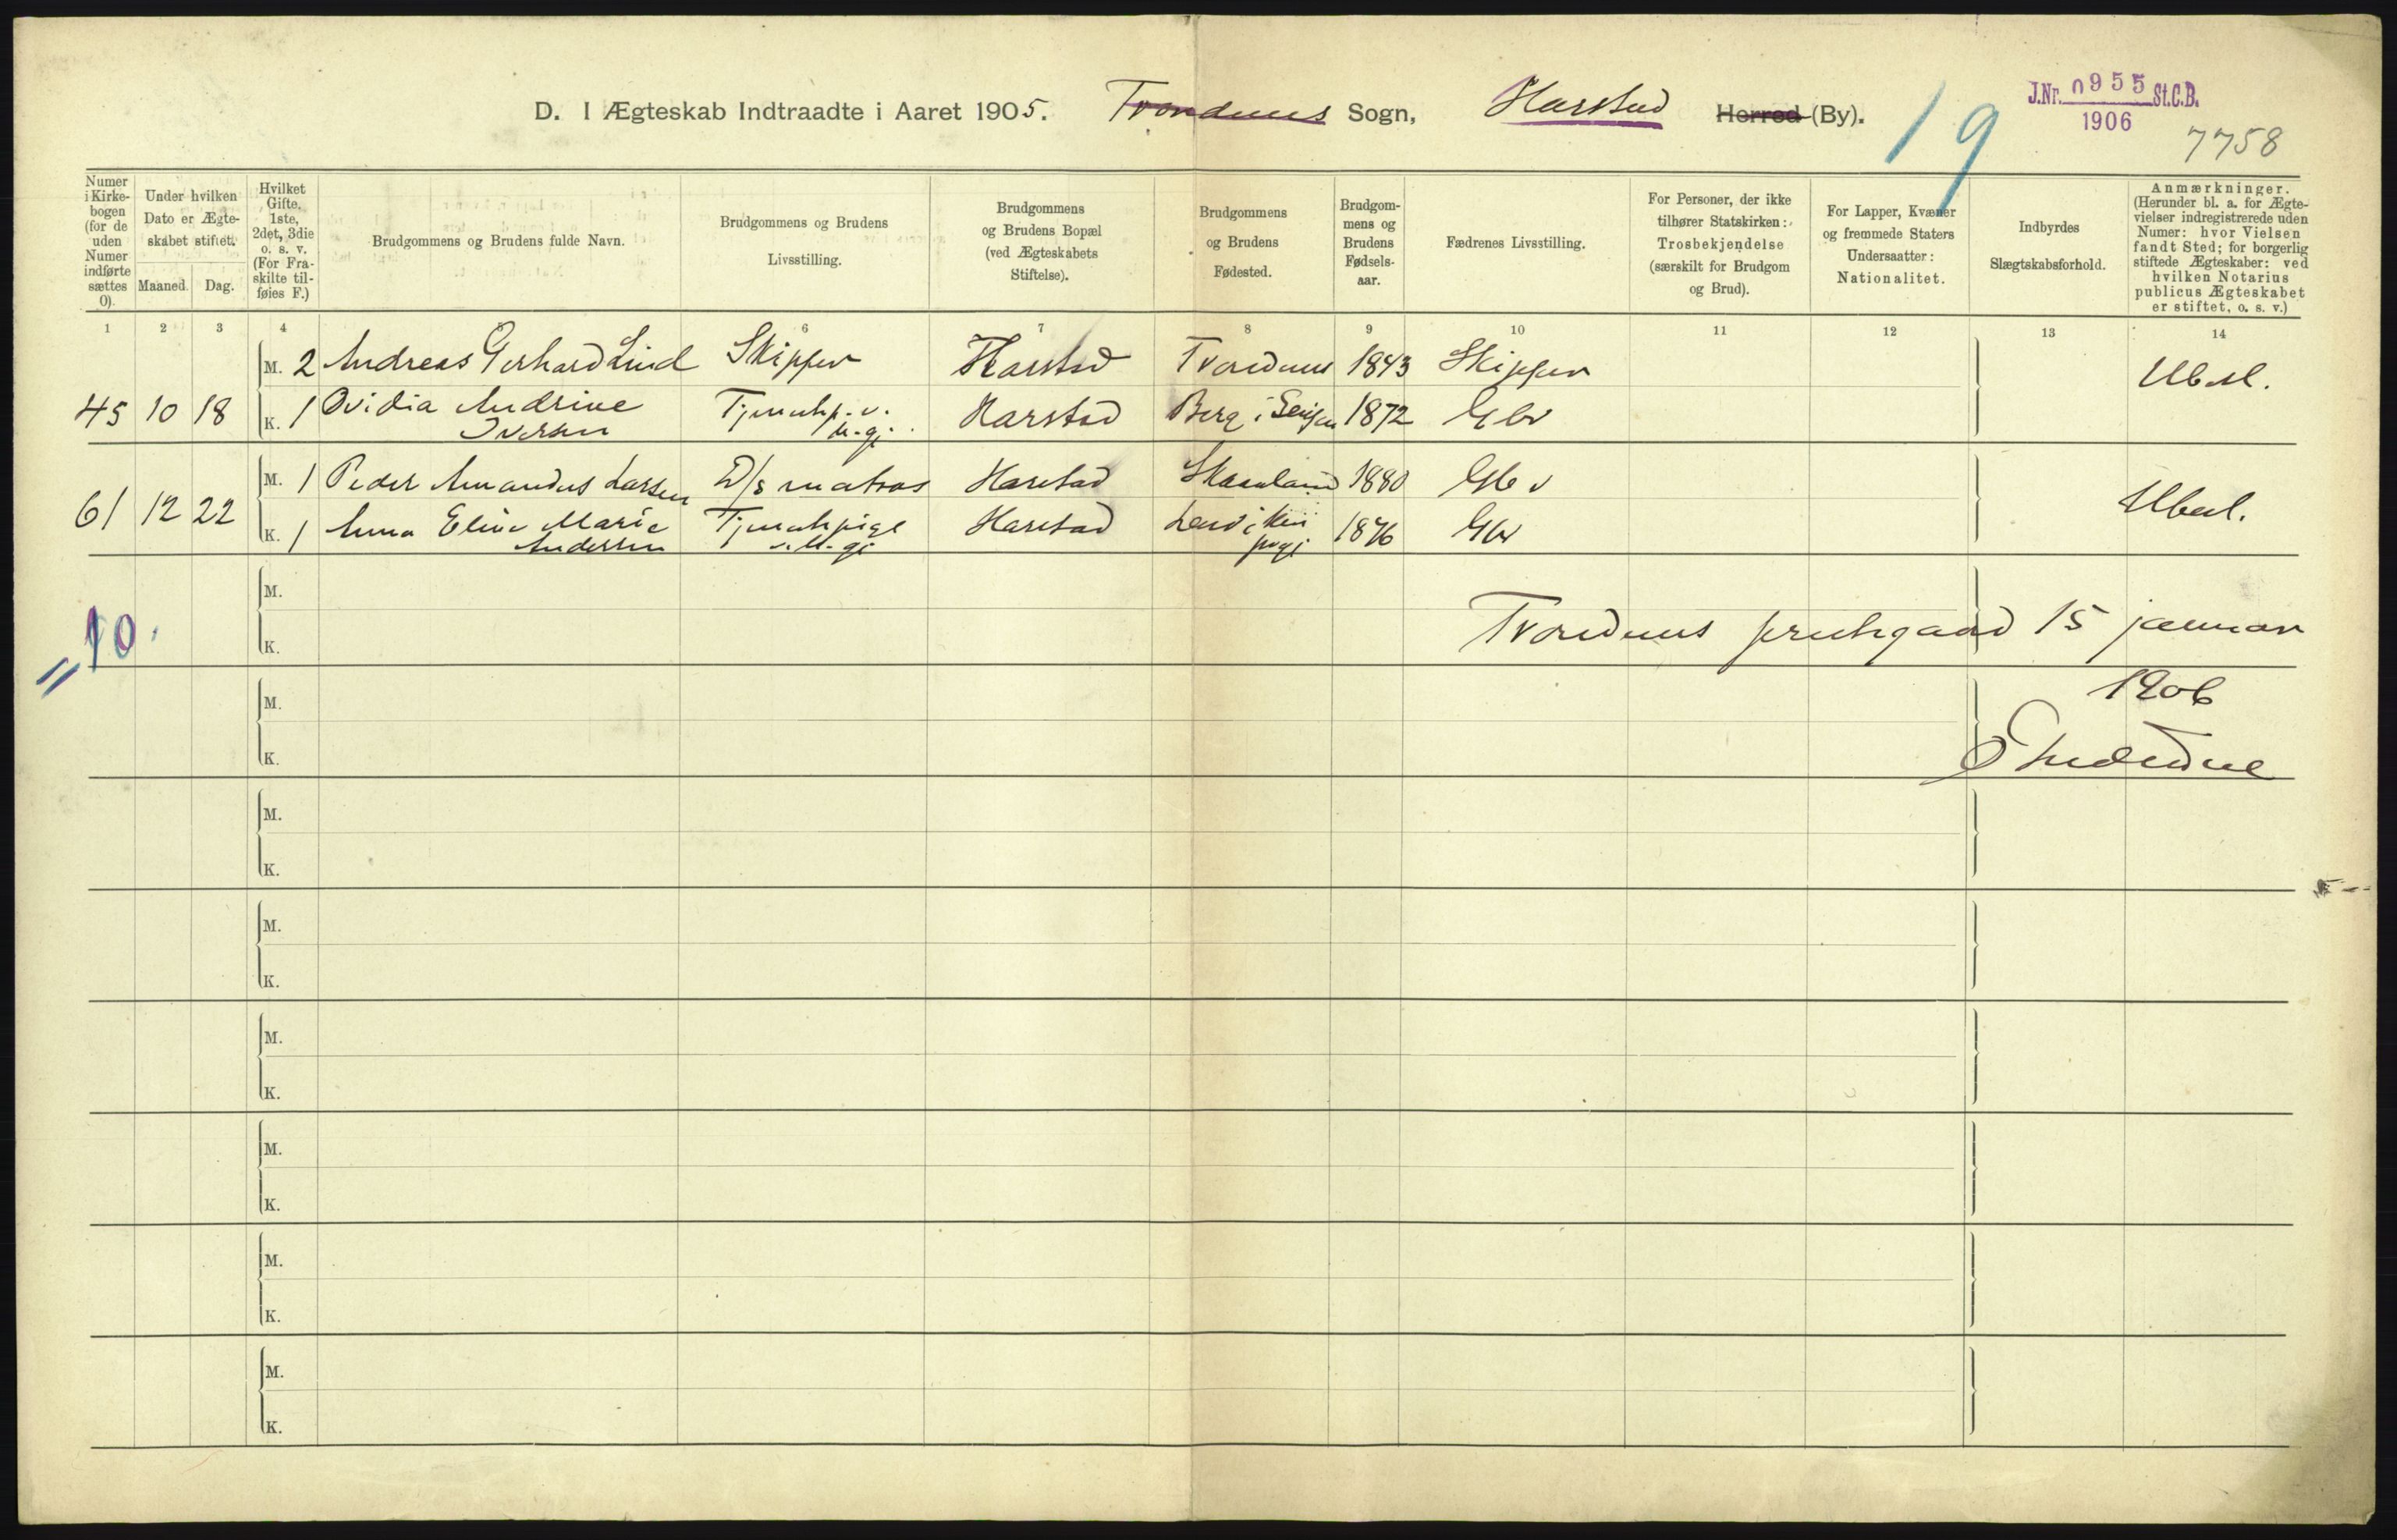 D. I Ægteskab Indtraadte i Aaret 1905. Trondenes Sogn, Harstad Herred (By).
19
J.Nr. 0955 St.C.B.
1906
7758
Numer i Kirkebogen (for de uden Numer indførte sættes 0).
Under hvilken Dato er Ægteskabet stiftet.
Maaned. Dag.
Hvilket Gifte, 1ste, 2det, 3die o. s. v. (For Fraskilte tilføies F.)
Brudgommens og Brudens fulde Navn.
Brudgommens og Brudens Livsstilling.
Brudgommens og Brudens Bopæl (ved Ægteskabets Stiftelse).
Brudgommens og Brudens Fødested.
Brudgommens og Brudens Fødselsaar.
Fædrenes Livsstilling.
For Personer, der ikke tilhører Statskirken: Trosbekjendelse (særskilt for Brudgom og Brud).
For Lapper, Kvæner og fremmede Staters Undersaatter: Nationalitet.
Indbyrdes Slægtskabsforhold.
Anmærkninger. (Herunder bl. a. for Ægtevielser indregistrerede uden Numer: hvor Vielsen fandt Sted; for borgerlig stiftede Ægteskaber: ved hvilken Notarius publicus Ægteskabet er stiftet, o. s. v.)
1 2 3 4 5 6 7 8 9 10 11 12 13 14
M. 2 Andreas Gerhard Lind Skipper Harstad Trondenes 1843 Skipper
45 10 18 K. 1 Ovidia Andrine Iversen Tjenestep. v. h.gj. Harstad Berg i Senjen 1872 Gbr
M. 1 Peder Amandus Larsen D/s matros Harstad Skaanland 1880 Gbr
61 12 22 K. 1 Anna Eline Marie Andersen Tjenestepige v. h.gj Harstad Lenviken prgj 1876 Gbr
M.
10.
K.
Trondenes prestegaard 15 januar
1906
M.
K.
M.
K.
M.
K.
M.
K.
M.
K.
M.
K.
M.
K.